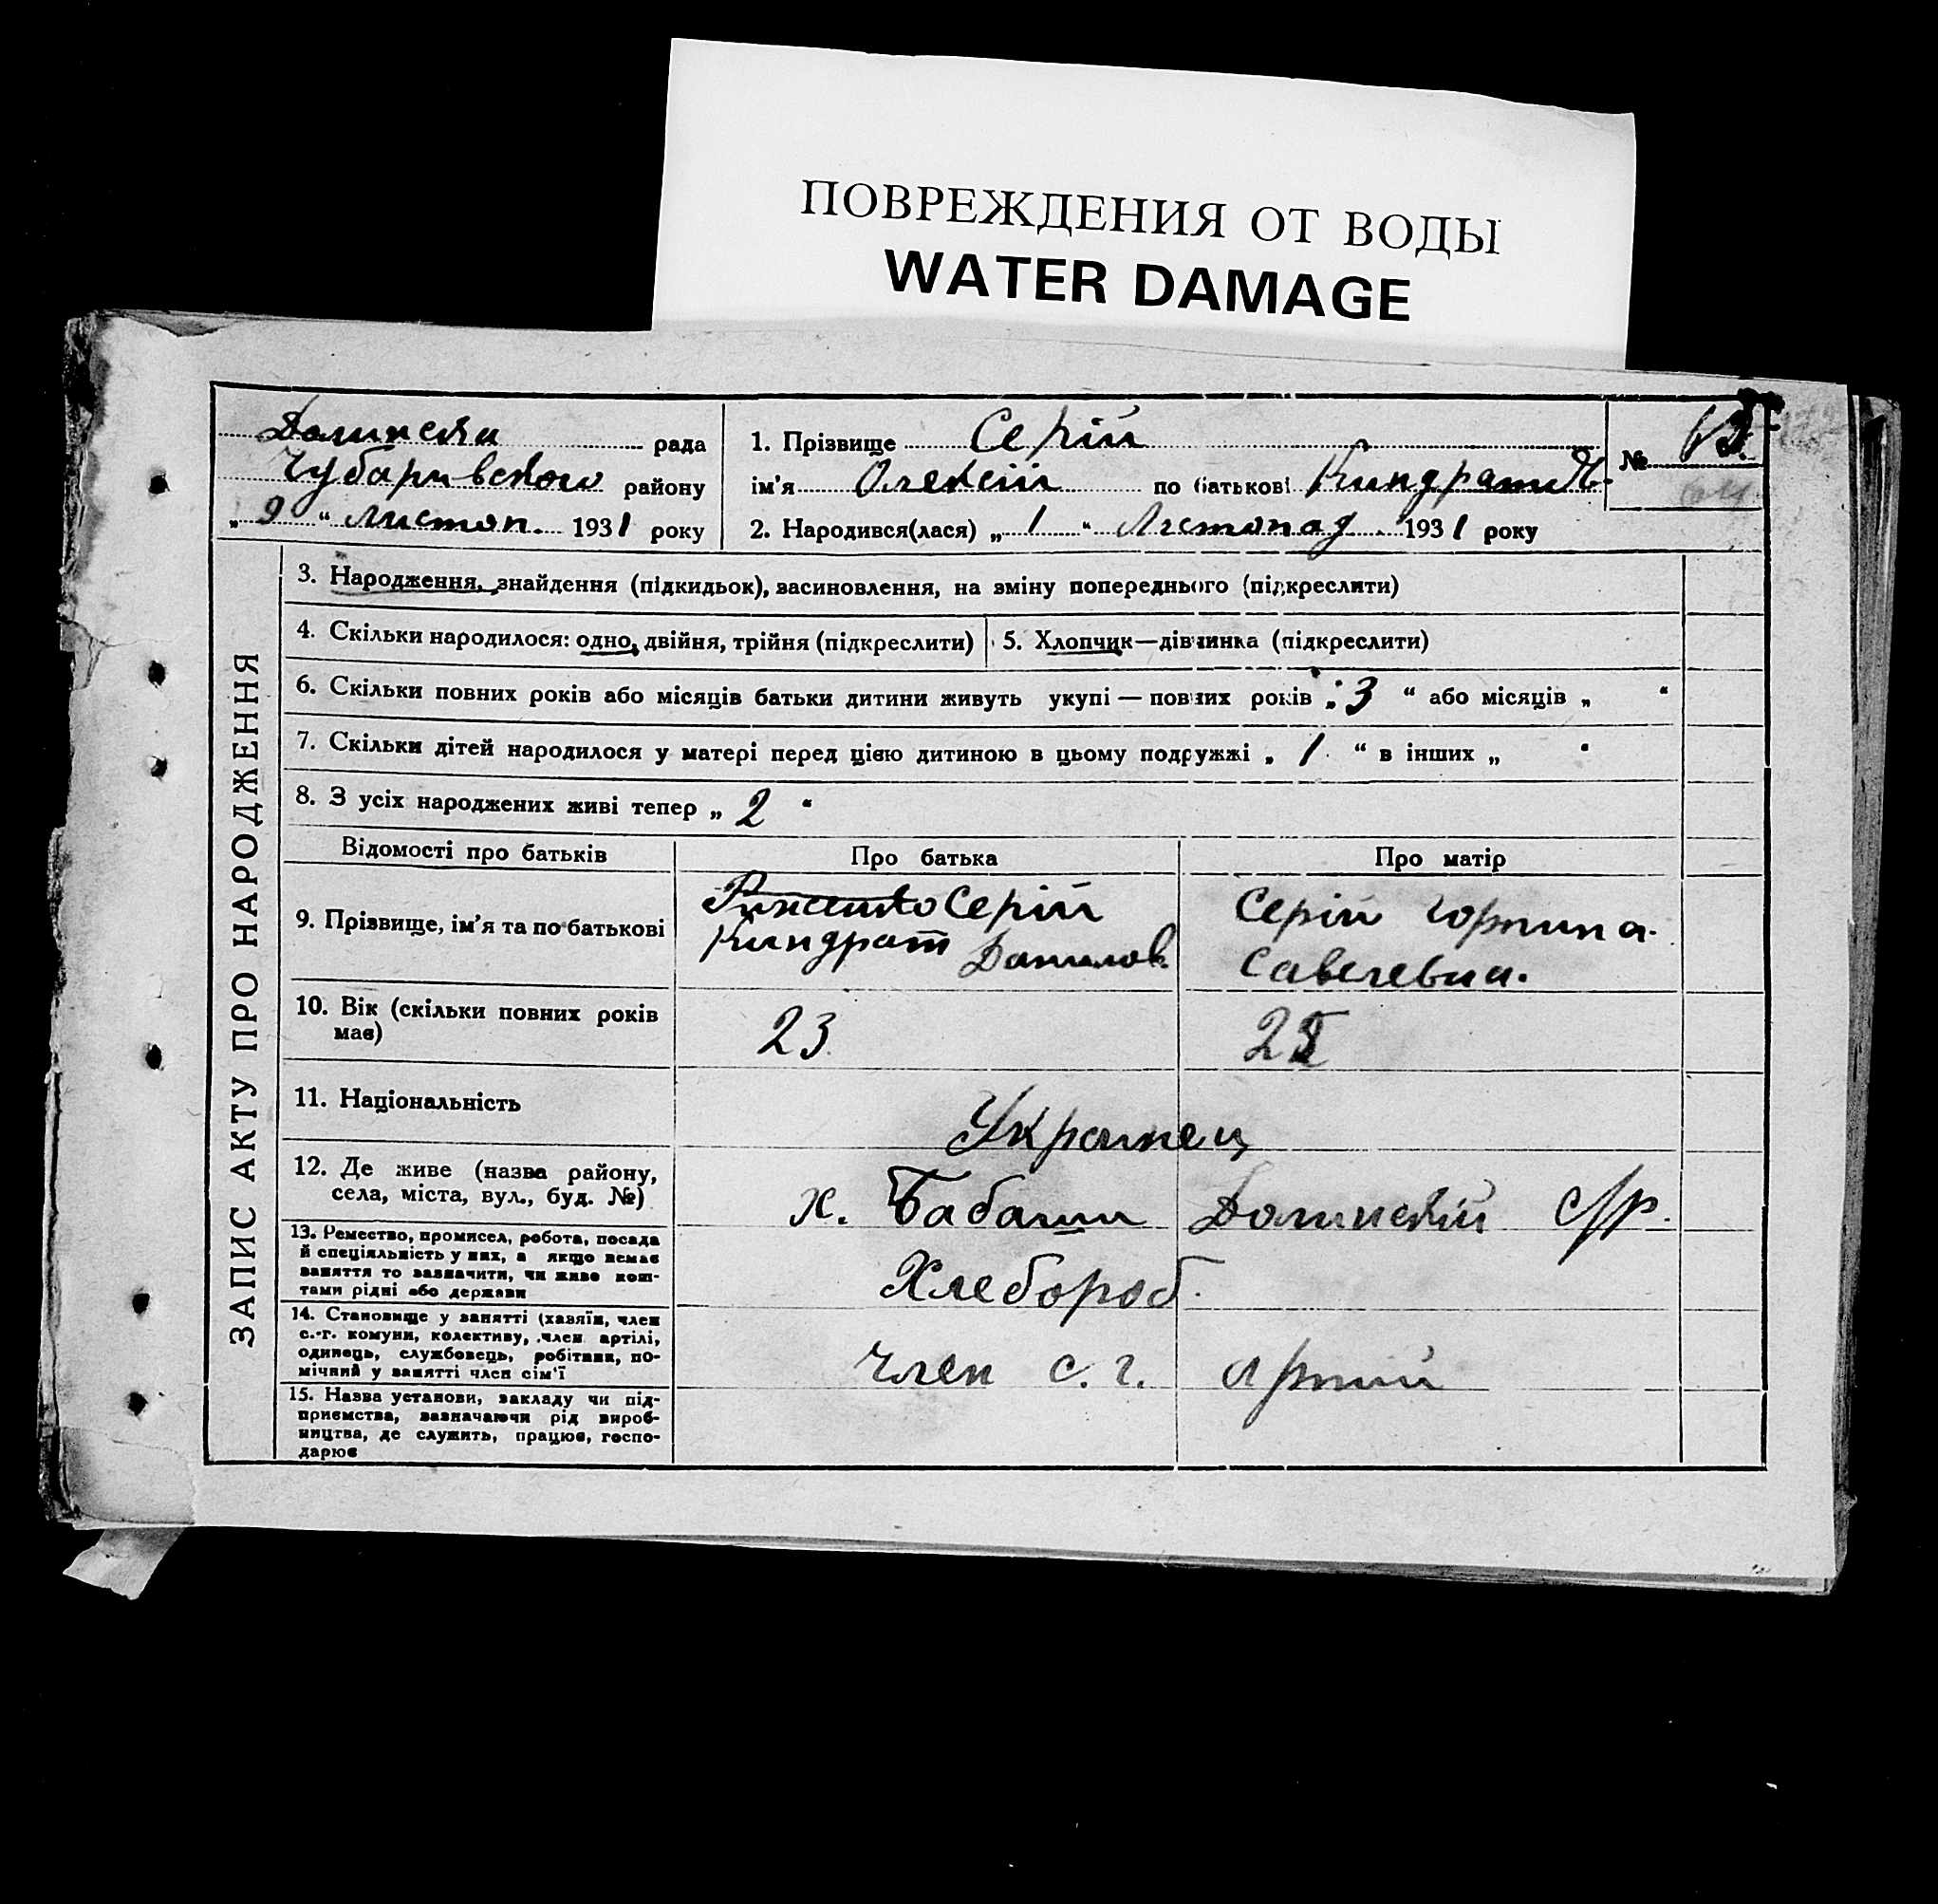 ПОВРЕЖДЕНИЯ ОТ ВОДЫ
WATER DAMAGE
Долинска рада
Чубаривского району
„ 9 “ Листоп. 1931 року
1. Прізвище Серій
ім'я Олексій по батькові
2. Народився(лася) „ 1 “ Листопад. 1931 року
№
ЗАПИС АКТУ ПРО НАРОДЖЕННЯ
3. Народження, знайдення (підкидьок), васиновлення, на зміну попереднього (підкреслити)
4. Скільки народилося: одно, двійня, трійня (підкреслити)
5. Хлопчик—дівчинка (підкреслити)
6. Скільки повних років або місяців батьки дитини живуть укупі — повних років „ 3 “ або місяців „ “
7. Скільки дітей народилося у матері перед цією дитиною в цьому подружжі „ 1 “ в інших „ “
8. З усіх народжених живі тепер „ 2 “
Відомості про батьків
Про батька
Про матір
9. Прізвище, ім'я та по батькові
Серій
Киндрат Данилов.
Серій Горпина
Савелевна.
10. Вік (скільки повних років
має)
23
11. Національність
Украинец
12. Де живе (назва району,
села, міста, вул., буд. №)
х. Бабаши Долинский с/р.
13. Ремество, промисел, робота, посада
й спеціяльність у них, а якщо немає
заняття то зазначити, чи живе кош-
тами рідні або держави
Хлебороб.
14. Становище у занятті (хазяїн, член
с.-г. комуни, колективу, член артілі,
одинець, службовець, робітник, по-
мічний у занятті член сім'ї
член с. г. Артий
15. Назва установи, закладу чи під-
приємства, зазначаючи рід вироб-
ництва, де служить, працює, госпо-
дарює